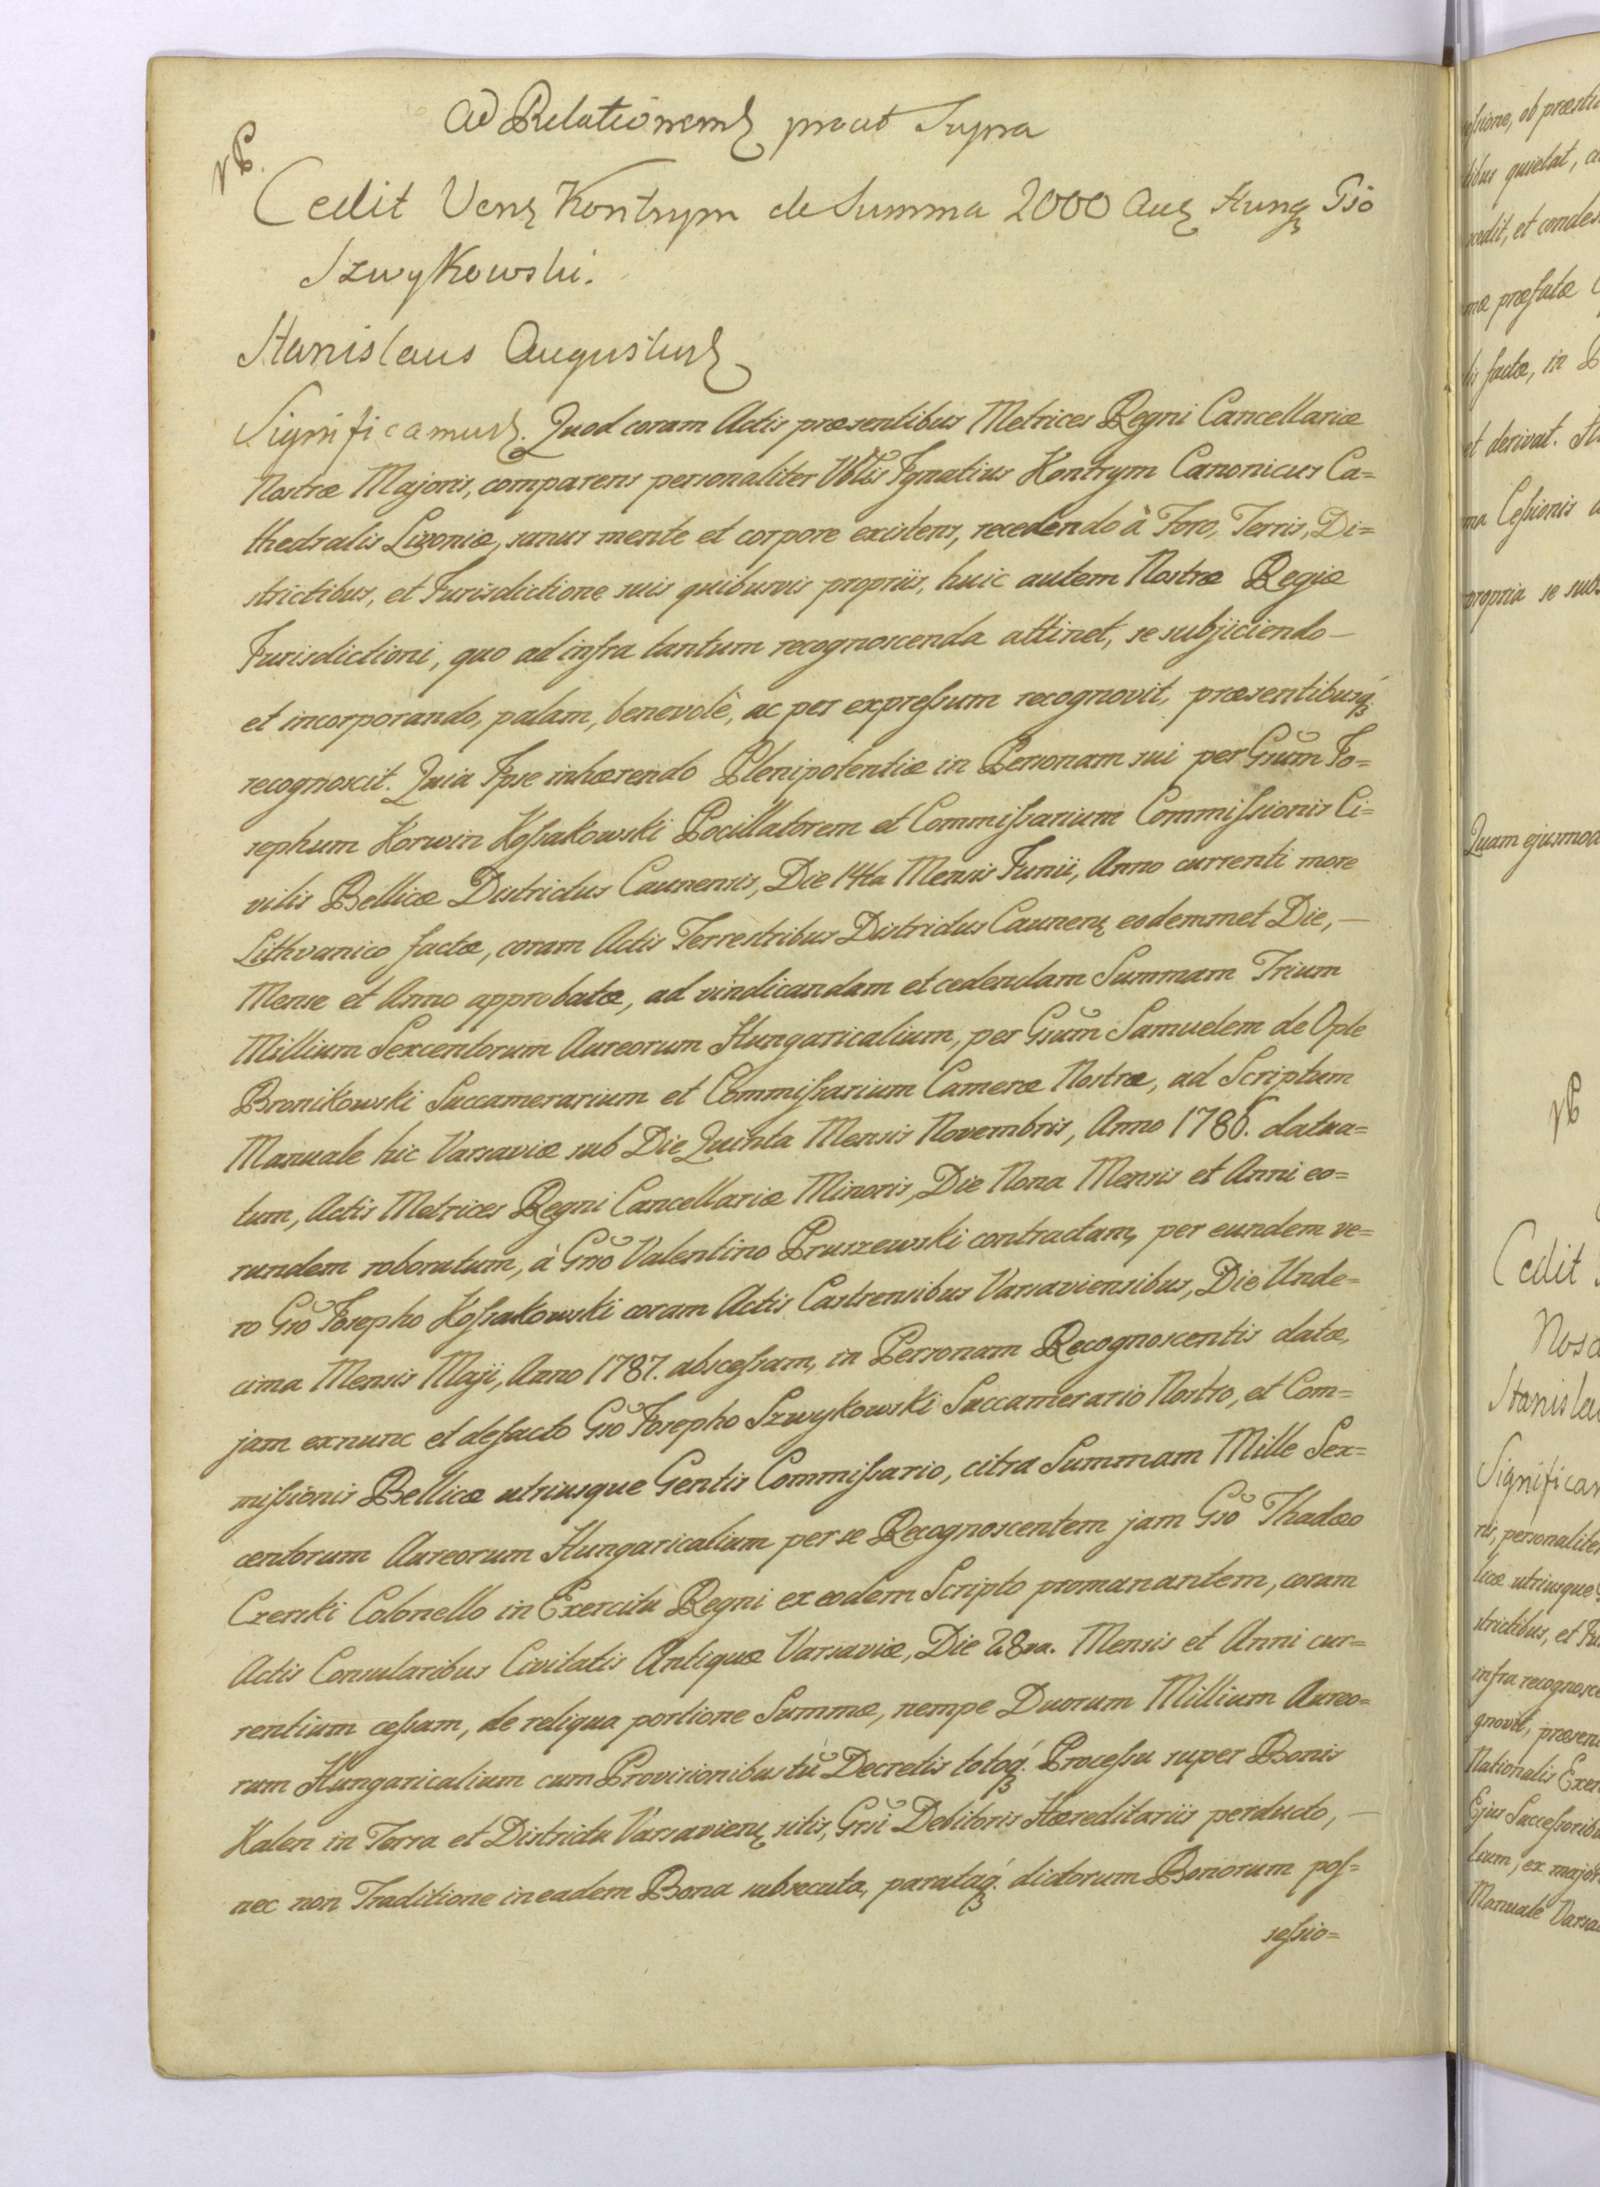 Ad Relationem prout Supra
Cedit Vene Kontrym de Summa 2000 Aug Hung Gso
Szwykowski.
Stanislaus Augustus
Significamus. Quod coram Actis præsentibus Metrices Regni Cancellariæ
Nostræ Majoris, comparens personaliter Vblis Ignatius Kontrym Canonicus Ca=
thedralis Livoniæ, sanus mente et corpore existens, recedendo à Foro, Terris, Di=
strictibus, et Jurisdictione suis quibusvis propriis, huic autem Nostræ Regiæ
Jurisdictioni, quo ad infra tantum recognoscenda attinet, se subjiciendo —
et incorporando, palam, benevolè, ac per expreſsum recognovit, præsentibusq́ꝫ
recognoscit. Quia Ipse inhærendo Plenipotentiæ in Personam sui per Gsum Jo=
sephum Korwin Koſsakowski Pocillatorem et Commiſsarium Commiſsionis Ci=
vilis Bellicæ Districtus Caunensis, Die 14ta Mensis Junii, Anno currenti more
Lithvanico factæ, coram Actis Terrestribus Districtus Caunenꝫ eodemmet Die, —
Mense et Anno approbatæ, ad vindicandam et cedendam Summam Trium
Millium Sexcentorum Aureorum Hungaricalium, per Gsum Samuelem de Ople
Bronikowski Succamerarium et Commiſsarium Cameræ Nostræ, ad Scriptum
Manuale hic Varsaviæ sub Die Quinta Mensis Novembris, Anno 1786. datua=
tum, Actis Metrices Regni Cancellariæ Minoris, Die Nona Mensis et Anni eo=
rundem roboratum, à Gso Valentino Pruszewski contractam, per eundem ve=
ro Gso Josepho Koſsakowski coram Actis Castrensibus Varsaviensibus, Die Unde=
cima Mensis Maji, Anno 1787. absceſsam, in Personam Recognoscentis datæ,
jam exnunc et defacto Gso Josepho Szwykowski Succamerario Nostro, et Com=
miſsionis Bellicæ utriusque Gentis Commiſsario, citra Summam Mille Sex=
centorum Aureorum Hungaricalium per se Recognoscentem jam Gso Thadæo
Czerski Colonello in Exercitu Regni ex eodem Scripto promanantem, coram
Actis Consularibus Civitatis Antiquæ Varsaviæ, Die 28va. Mensis et Anni cur=
rentium ceſsam, de reliqua portione Summæ, nempe Duorum Millium Aureo=
rum Hungaricalium cum Provisionibus tũ Decretis totoq́ꝫ. Proceſsu super Bonis
Kalen in Terra et Districtu Varsavienꝫ sitis, Gsi Debitoris Hæreditariis perducto, —
nec non Traditione in eadem Bona subsecuta, parataq́ꝫ. dictorum Bonorum poſ=
seſsio=
eſsione, ob præstit
tibus quietat, a
cedit, et conde
mæ præfatæ
is factæ, in
et derivat.
ma Ceſsionis
propria se subs
Quam ejusmod
Cedit
Nosa
Stanislau
Significam
ris, personaliter
licæ utriusque
strictibus, et Ju
infra recognosce
gnovit, præsen
Nationalis Exer
Ejus Succeſsoribu
lium, ex major
Manuale Varsa